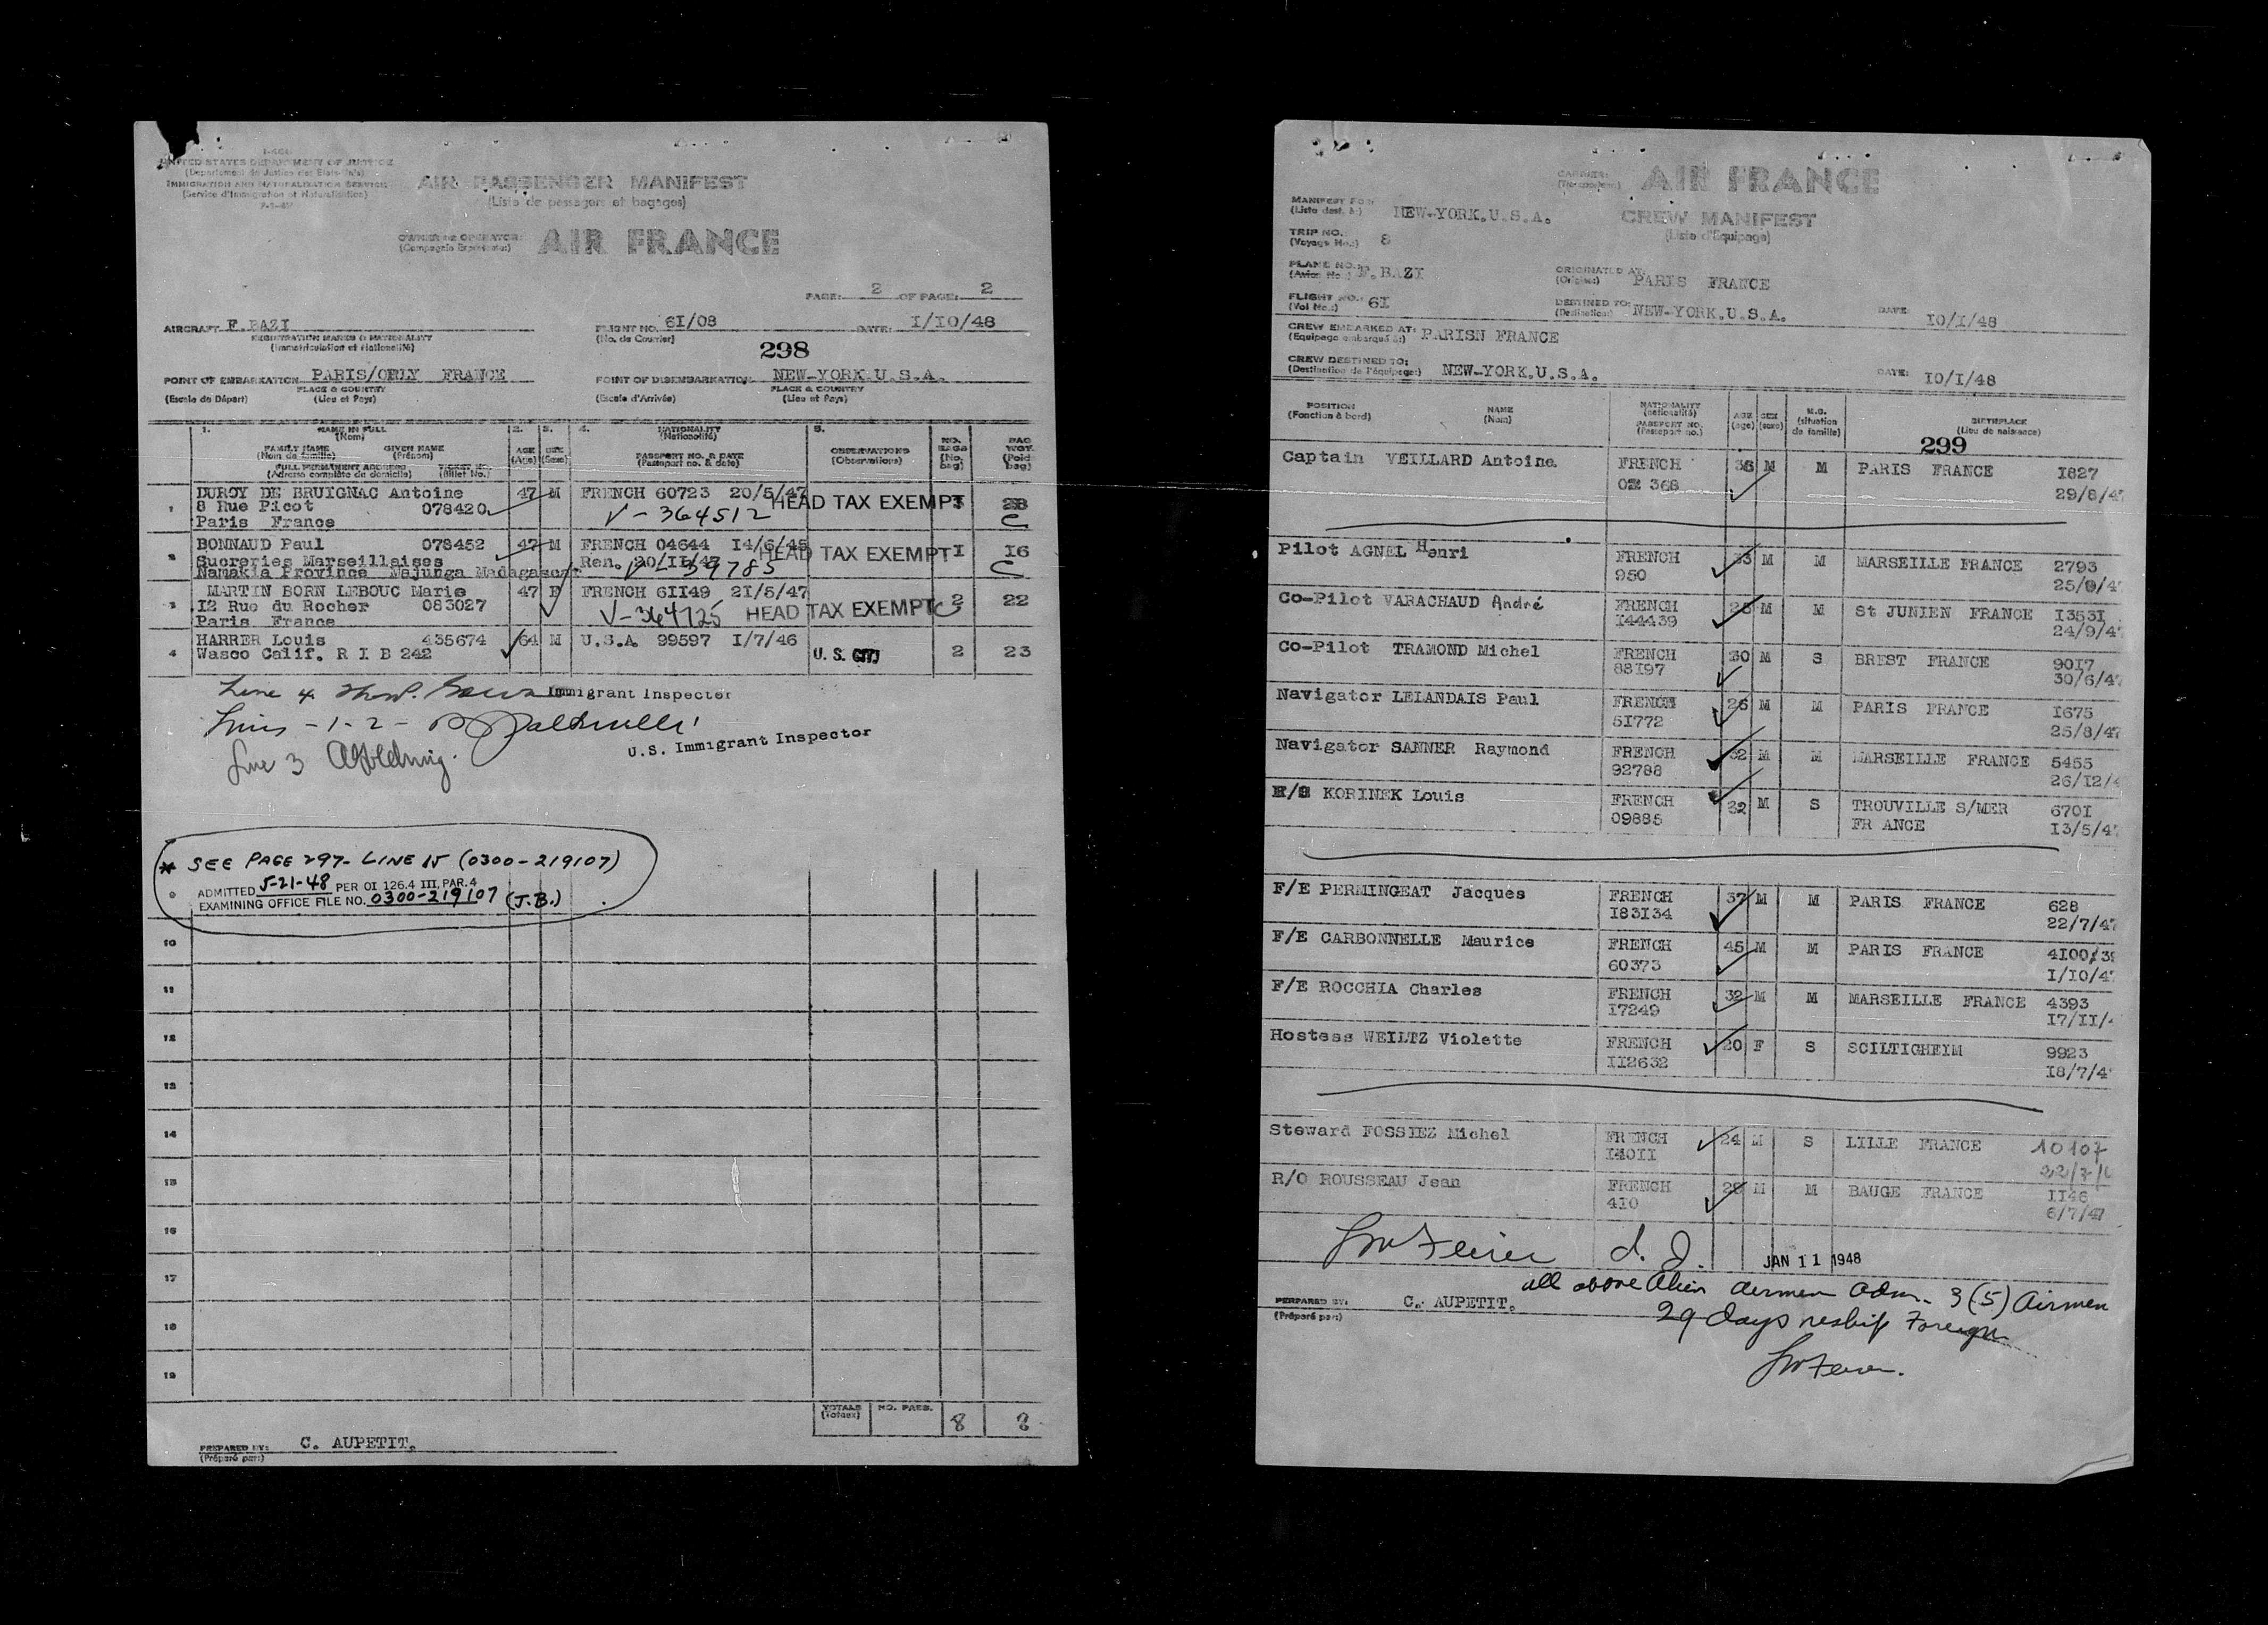 I-466
UNITED STATES DEPARTMENT OF JUSTICE
(Département de Justice des Etats-Unis)
IMMIGRATION AND NATURALIZATION SERVICE
(Service d'Immigration et Naturalisation)
AIR PASSENGER MANIFEST
(Liste de passagers et bagages)
OWNER OR OPERATOR: AIR FRANCE
(Compagnie Exportateur)
PAGE: 2 OF PAGE: 2
AIRCRAFT F.BAZI FLIGHT NO. 6I/08 DATE: I/IO/48
REGISTRATION MARKS & NATIONALITY (No. de Courrier)
(Immatriculation et Nationalité)
298
POINT OF EMBARKATION PARIS/ORLY FRANCE POINT OF DISEMBARKATION NEW-YORK.U.S.A.
(Escale de Départ) PLACE & COUNTRY (Escale d'Arrivée) PLACE & COUNTRY
(Lieu et Pays) (Lieu et Pays)
1. NAME IN FULL 2. 3. 4. NATIONALITY 5. NO. BAG
(Nom) (Nationalité) BAGS WGT.
FAMILY NAME GIVEN NAME AGE SEX PASSPORT NO. & DATE OBSERVATIONS (No. (Poid
(Nom de famille) (Prénom) (Age) (Sexe) (Passeport no. & date) (Observations) bag) bag)
FULL PERMANENT ADDRESS TICKET NO.
(Adresse complète de domicile) (Billet No.)
1 DUROY DE BRUIGNAC Antoine 47 M FRENCH 60723 20/5/47 HEAD TAX EXEMPT 3 28
8 Rue Picot 078420 V-364512 C
Paris France
2 BONNAUD Paul 078452 47 M FRENCH 04644 I4/6/45 HEAD TAX EXEMPT I I6
Sucreries Marseillaises Ren. 20/II/47 V-39785 C
Namakia Province Majunga Madagascar
3 MARTIN BORN LEBOUC Marie 47 F FRENCH 6II49 2I/5/47 2 22
12 Rue du Rocher 083027 V-364725 HEAD TAX EXEMPT C
Paris France
4 HARRER Louis 435674 64 M U.S.A. 99597 I/7/46 U.S. CIT 2 23
Wasco Calif. R I B 242
Line 4 Immigrant Inspector
Lines -1-2-
U.S. Immigrant Inspector
Line 3
* SEE PAGE 297- LINE 15 (0300-219107)
9 ADMITTED 5-21-48 PER OI 126.4 III, PAR. 4
EXAMINING OFFICE FILE NO. 0300-219107 (J.B.)
10
11
12
13
14
15
16
17
18
19
TOTALS NO. PASS. 8 8
(Totaux)
PREPARED BY: C. AUPETIT.
(Préparé par:)
CARRIER: AIR FRANCE
(Transporteur)
MANIFEST FOR NEW-YORK.U.S.A. CREW MANIFEST
(Liste dest. à:) (Liste d'Equipage)
TRIP NO. 8
(Voyage No.:)
PLANE NO. F.BAZI ORIGINATED AT: PARIS FRANCE
(Avion No.) (Origine:)
FLIGHT NO.: 6I DESTINED TO: NEW-YORK.U.S.A. DATE: IO/I/48
(Vol No.:) (Destination:)
CREW EMBARKED AT: PARISN FRANCE
(Equipage embarqué à:)
CREW DESTINED TO: NEW-YORK.U.S.A. DATE: IO/I/48
(Destination de l'équipage:)
POSITION NAME NATIONALITY AGE SEX M.S. BIRTHPLACE
(Fonction à bord) (Nom) (nationalité) (age) (sexe) (situation de famille) (Lieu de naissance)
PASSPORT NO.
(Passeport no.)
299
Captain VEILLARD Antoine FRENCH 36 M M PARIS FRANCE I827
02 368 29/8/4
Pilot AGNEL Henri FRENCH 33 M M MARSEILLE FRANCE 2793
950 25/9/4
Co-Pilot VARACHAUD André FRENCH 28 M M St JUNIEN FRANCE I353I
I44439 24/9/4
Co-Pilot TRAMOND Michel FRENCH 30 M S BREST FRANCE 90I7
88I97 30/6/4
Navigator LELANDAIS Paul FRENCH 26 M M PARIS FRANCE I675
5I772 25/8/47
Navigator SANNER Raymond FRENCH 32 M M MARSEILLE FRANCE 5455
92788 26/I2/4
R/O KORINEK Louis FRENCH 32 M S TROUVILLE S/MER 670I
09885 FR ANCE I3/5/4
F/E PERMINGEAT Jacques FRENCH 37 M M PARIS FRANCE 628
I83I34 22/7/47
F/E CARBONNELLE Maurice FRENCH 45 M M PARIS FRANCE 4I00/39
60373 I/IO/4
F/E ROCCHIA Charles FRENCH 32 M M MARSEILLE FRANCE 4393
I7249 I7/II/
Hostess WEILTZ Violette FRENCH 20 F S SCILTIGHEIM 9923
II2632 I8/7/4
Steward FOSSIEZ Michel FRENCH 24 M S LILLE FRANCE 10107
I40II 22/7/
R/O ROUSSEAU Jean FRENCH 28 M M BAUGE FRANCE II46
4I0 6/7/47
JAN 11 1948
all above Alien airmen adm. 3(5) Airmen
PREPARED BY: C. AUPETIT. 29 days reship Foreign
(Préparé par:)